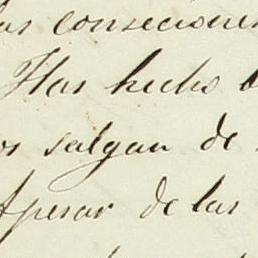 las consecuen
Has hecho b
os salgan de
Apesar de las